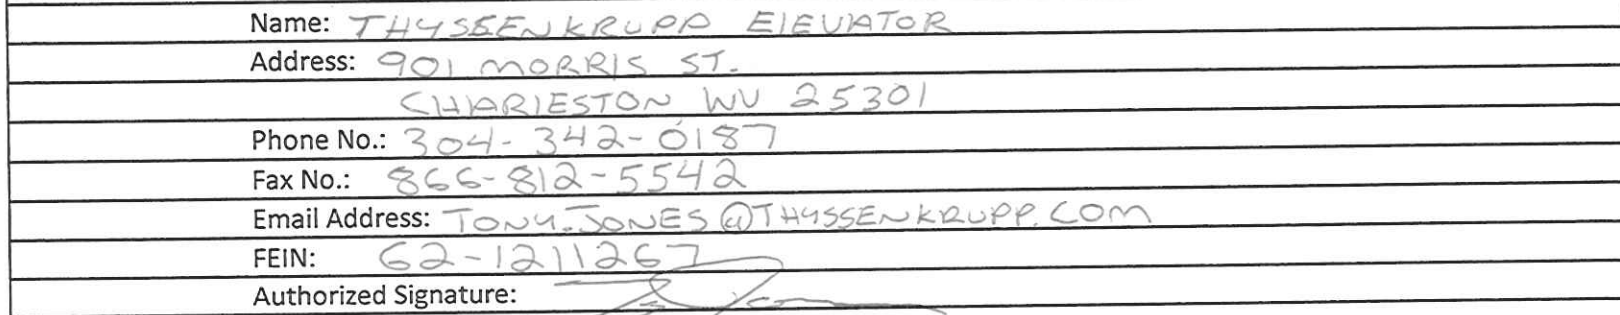 Name: THYSSENKRUPP ElEVATOR
Address: 901 MORRIS ST.
CHARlESTON WV 25301
Phone No.: 304-342-0187
Fax No.: 866-812-5542
Email Address: TONY.JONES@THYSSENKRUPP.COM
FEIN: 62-1211267
Authorized Signature: